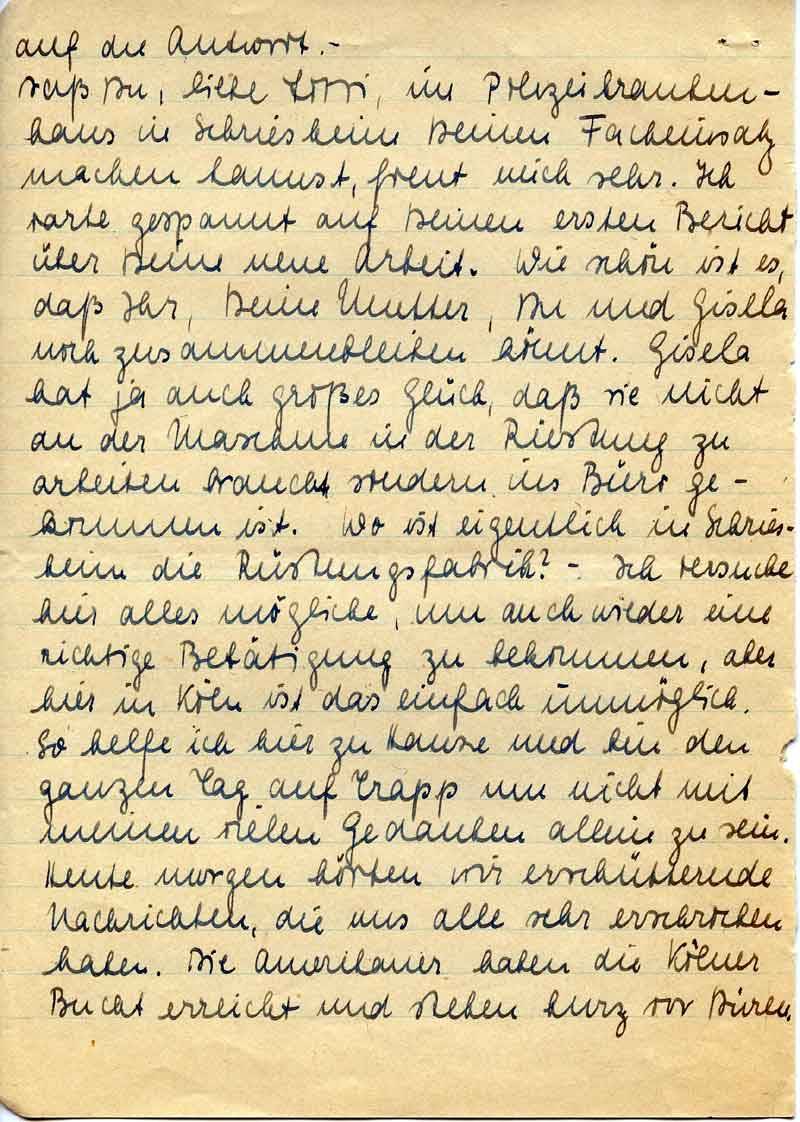 auf die Antwort.-
Daß Du, liebe Lotti, im Polizeikranken-
haus in Schriesheim Deinen Facheinsatz
machen kannst, freut mich sehr. Ich
warte gespannt auf Deinen ersten Bericht
über Deine neue Arbeit. Wie schön ist es,
daß Ihr, Deine Mutter, Du und Gisela
noch zusammenbleiben könnt. Gisela
hat ja auch großes Glück, daß sie nicht
an der Maschine in der Rüstung zu
arbeiten braucht sondern ins Büro ge-
kommen ist. Wo ist eigentlich in Schries-
heim die Rüstungsfabrik? - Ich versuche
hier alles mögliche, um auch wieder eine
richtige Betätigung zu bekommen, aber
hier in Köln ist das einfach unmöglich.
So helfe ich hier zu Hause und bin den
ganzen Tag auf Trapp um nicht mit
meinen vielen Gedanken allein zu sein.
Heute morgen hörten wir erschütternde
Nachrichten, die uns alle sehr erschrocken
haben. Die Amerikaner haben die Kölner
Bucht erreicht und stehen kurz vor Düren.